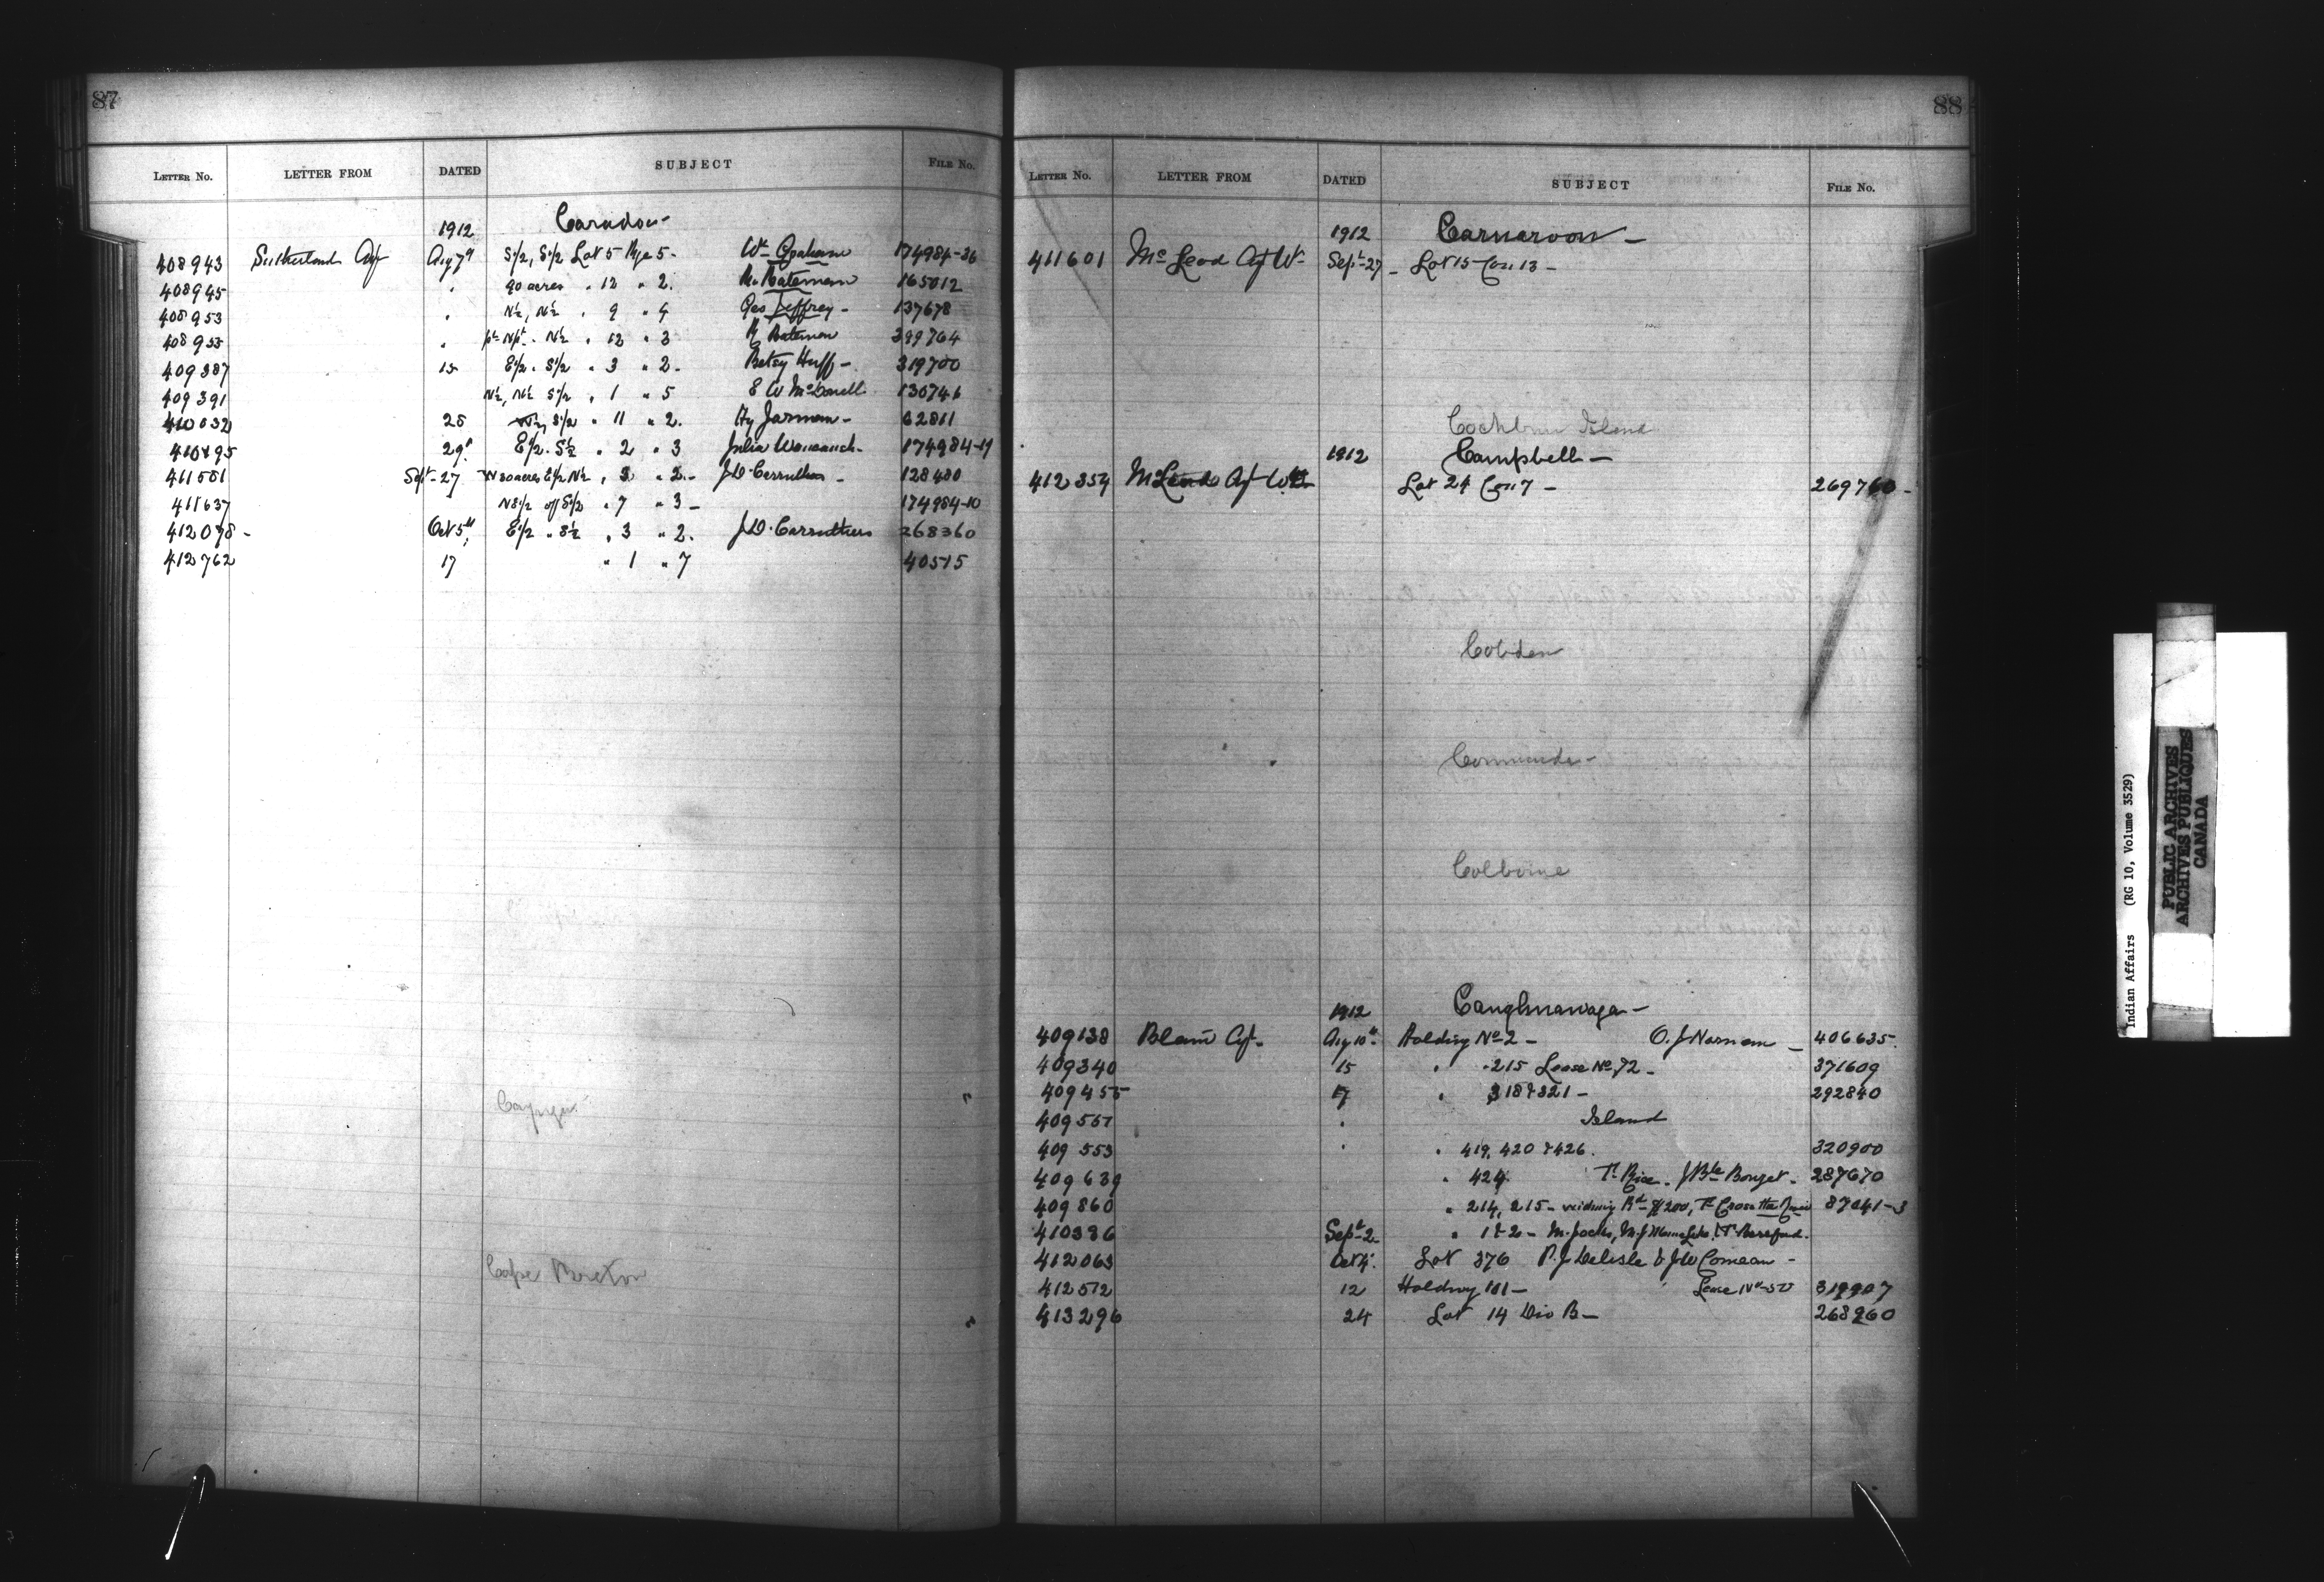 87
LETTER No. LETTER FROM DATED SUBJECT FILE No.
1912 Caradoc -
408943 Sutherland Agt Aug 7th S½, S½ Lot 5 Rge 5 - Wm Graham 174984-36
408945 " 90 acres " 12 " 2. R. Bateman 165012
408953 " N½, N½ " 9 " 4 Geo Jeffrey - 137678
408955 " pt Npt - N½ " 12 " 3 R Bateman 399764
409387 15 E½ - S½ " 3 " 2 - Betsy Huff - 319700
409391 N½, N½ S½ " 1 " 5 E W McDonell 130746
410032 25 S½ " 11 " 2. Hy Jarman - 62811
410495 29th E½ - S½ " 2 " 3 Julia 174984-19
411551 Sept - 27 W 20 acres E½ N½ " 3 " 2 - J.D. Carruthers - 128400
411637 N E½ off S½ " 7 " 3 - 174984-10
412078 - Oct 5th E½ " S½ " 3 " 2. J.D. Carruthers 268360
412762 17 " 1 " 7 40515
Cayuga
Cape Breton
88
LETTER No. LETTER FROM DATED SUBJECT FILE No.
1912 Carnarvon -
411601 McLeod Agt Wm Sept - 27 - Lot 15 Con 13 -
Cockburn Island
1912 Campbell -
412354 McLeod Agt Wm Lot 24 Con 7 - 269760 -
Cobden
Commanda -
Colborne
1912 Caughnawaga -
409138 Blain Agt - Aug 10th - Holding No 2 - O. J Norman - 406635
409340 15 " - 215 Lease No. 72 - 371609
409455 17 " 318 & 321 - 292840
409557 " Island
409553 " " 419, 420 & 426. 320900
409639 " 424 T. Rice - J Bte Bouget - 287670
409860 " 214, 215 - widening Rd - $200, T. Cross 87041-3
410386 Sept - 2 " 1 & 2 - M. Jocks, M. J
412063 Oct 4. Lot 376 P. J Delisle & J W Comeau -
412572 12 Holding 181 - Lease No 55 319907
413296 24 Lot 14 Div B - 268260
Indian Affairs (RG 10, Volume 3529)
PUBLIC ARCHIVES
ARCHIVES PUBLIQUES
CANADA